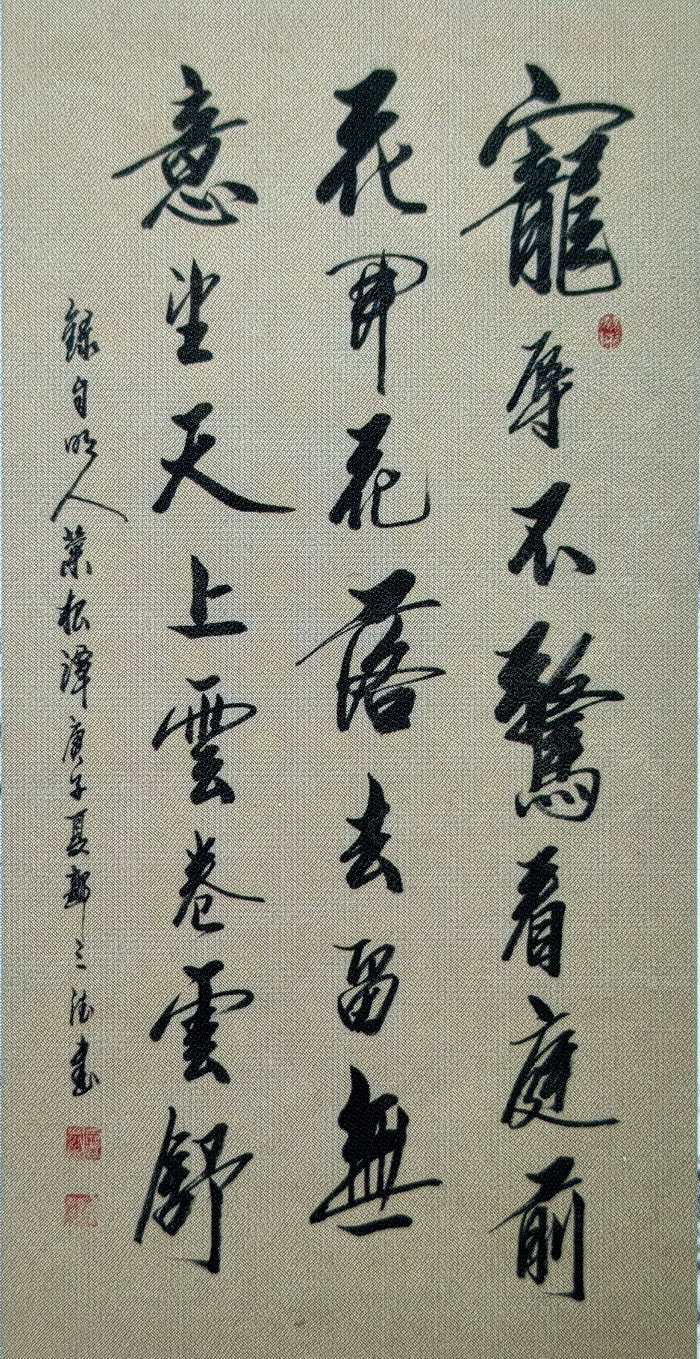 寵辱不驚看庭前
花開花落去留無
意望天上雲卷雲舒
錄自明人葉松潭庚子夏三書